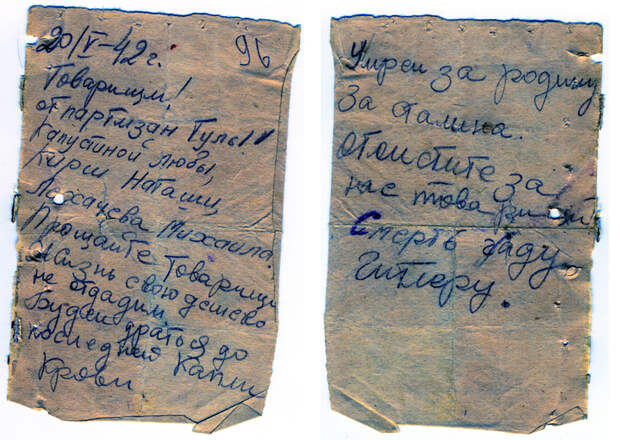 20/V-42 г. 96
Товарищи!
от партизан Тулы!
Капустиной Любы,
Кирш Наташи,
Лихачева Михаила.
Прощайте Товарищи
Жизнь свою дешево
не отдадим
Будем драться до
последней Капли
Крови
Умрем за родину
За Сталина.
отомстите за
нас товарищи
Смерть гаду
Гитлеру.